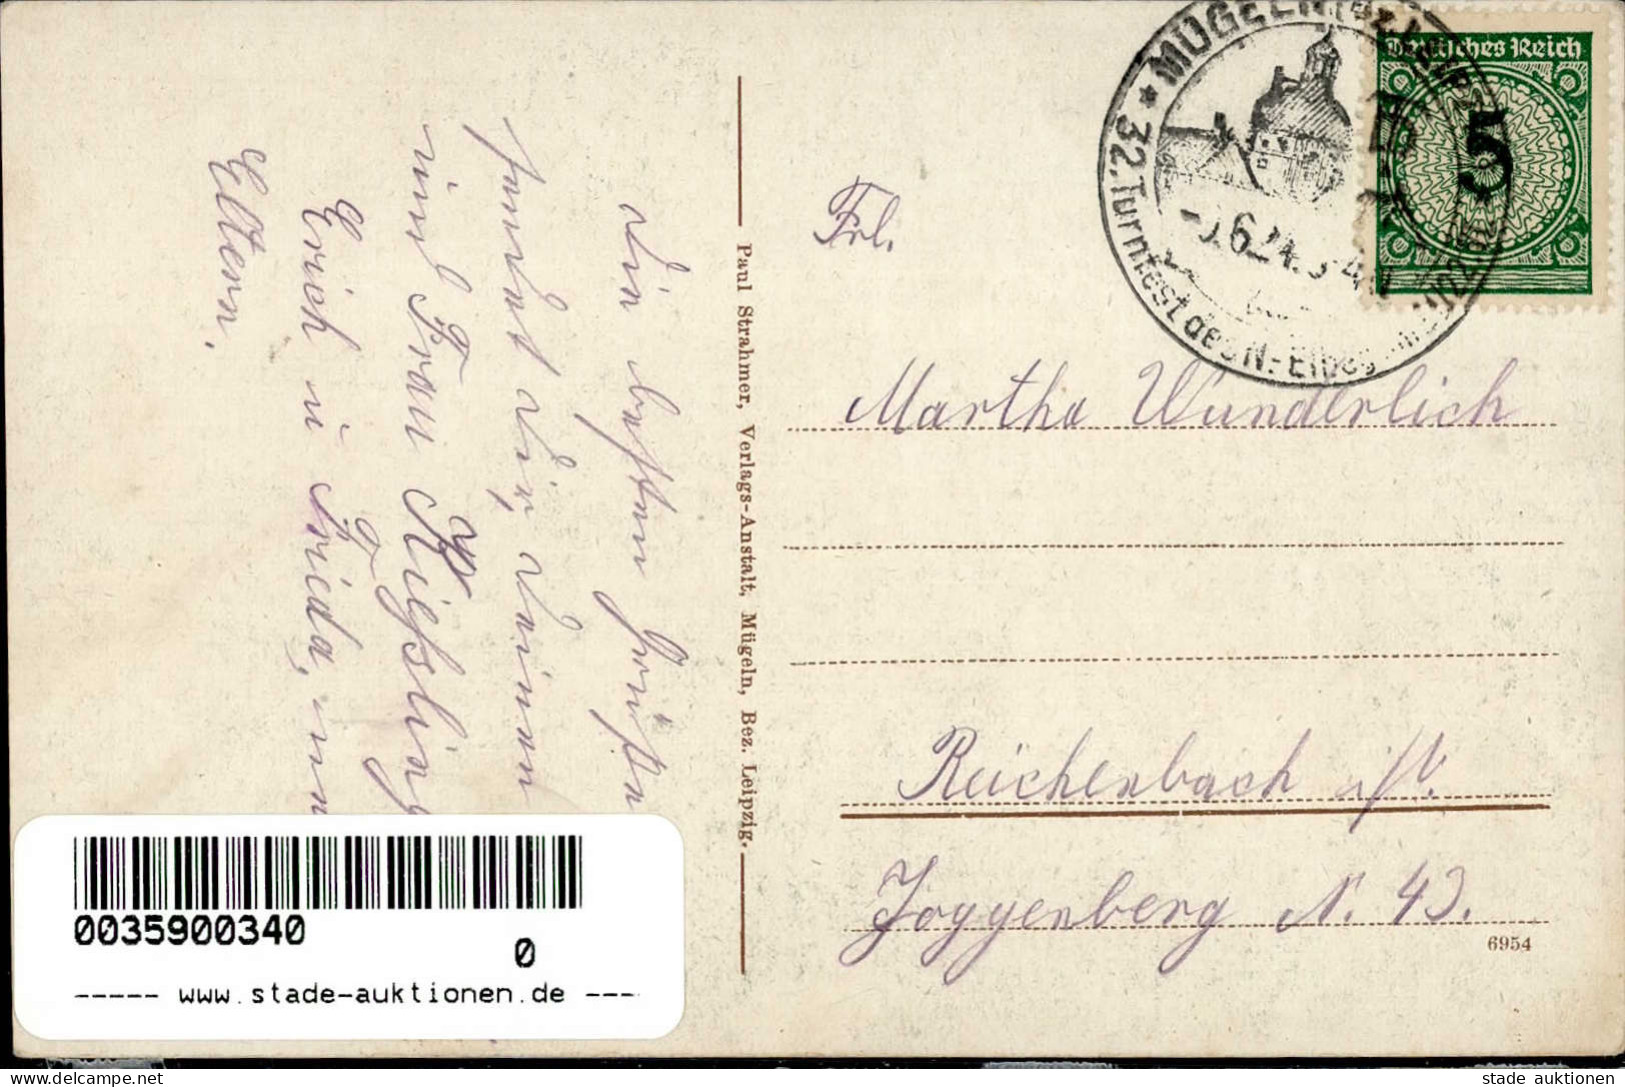 Die besten Grüße
sendet Dir, Deinen
und Frau Kießling
Erich u Frieda, und
Eltern.
Paul Strahmer, Verlags-Anstalt, Mügeln, Bez. Leipzig.
* MÜGELN (Bz.
* 32. Turnfest des N.-Elbe
6.24.
Deutsches Reich
5
Frl.
Martha Wunderlich
Reichenbach i/V.
Joggenberg N. 43.
6954
0035900340
0
----- www.stade-auktionen.de ---
www.delcampe.net
stade auktionen